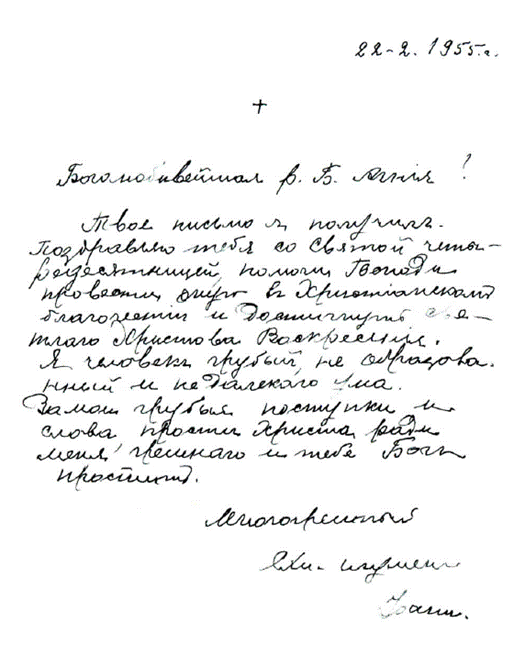 22-2. 1955 г.
+
Боголюбивейшая р. Б. !
Твое письмо я получилъ.
Поздравляю тебя со святой четы-
редесятницей, помоги Господи
провести оную въ Христианском
благочестии и достигнуть све-
тлаго Христова Воскресения.
Я человекъ грубый, не образова-
нный и не далекого ума.
За мои грубыя поступки и
слова прости Христа ради
меня грешнаго и тебе Богъ
простит.
Многогрешный
Схи-игумен
Иоанн.